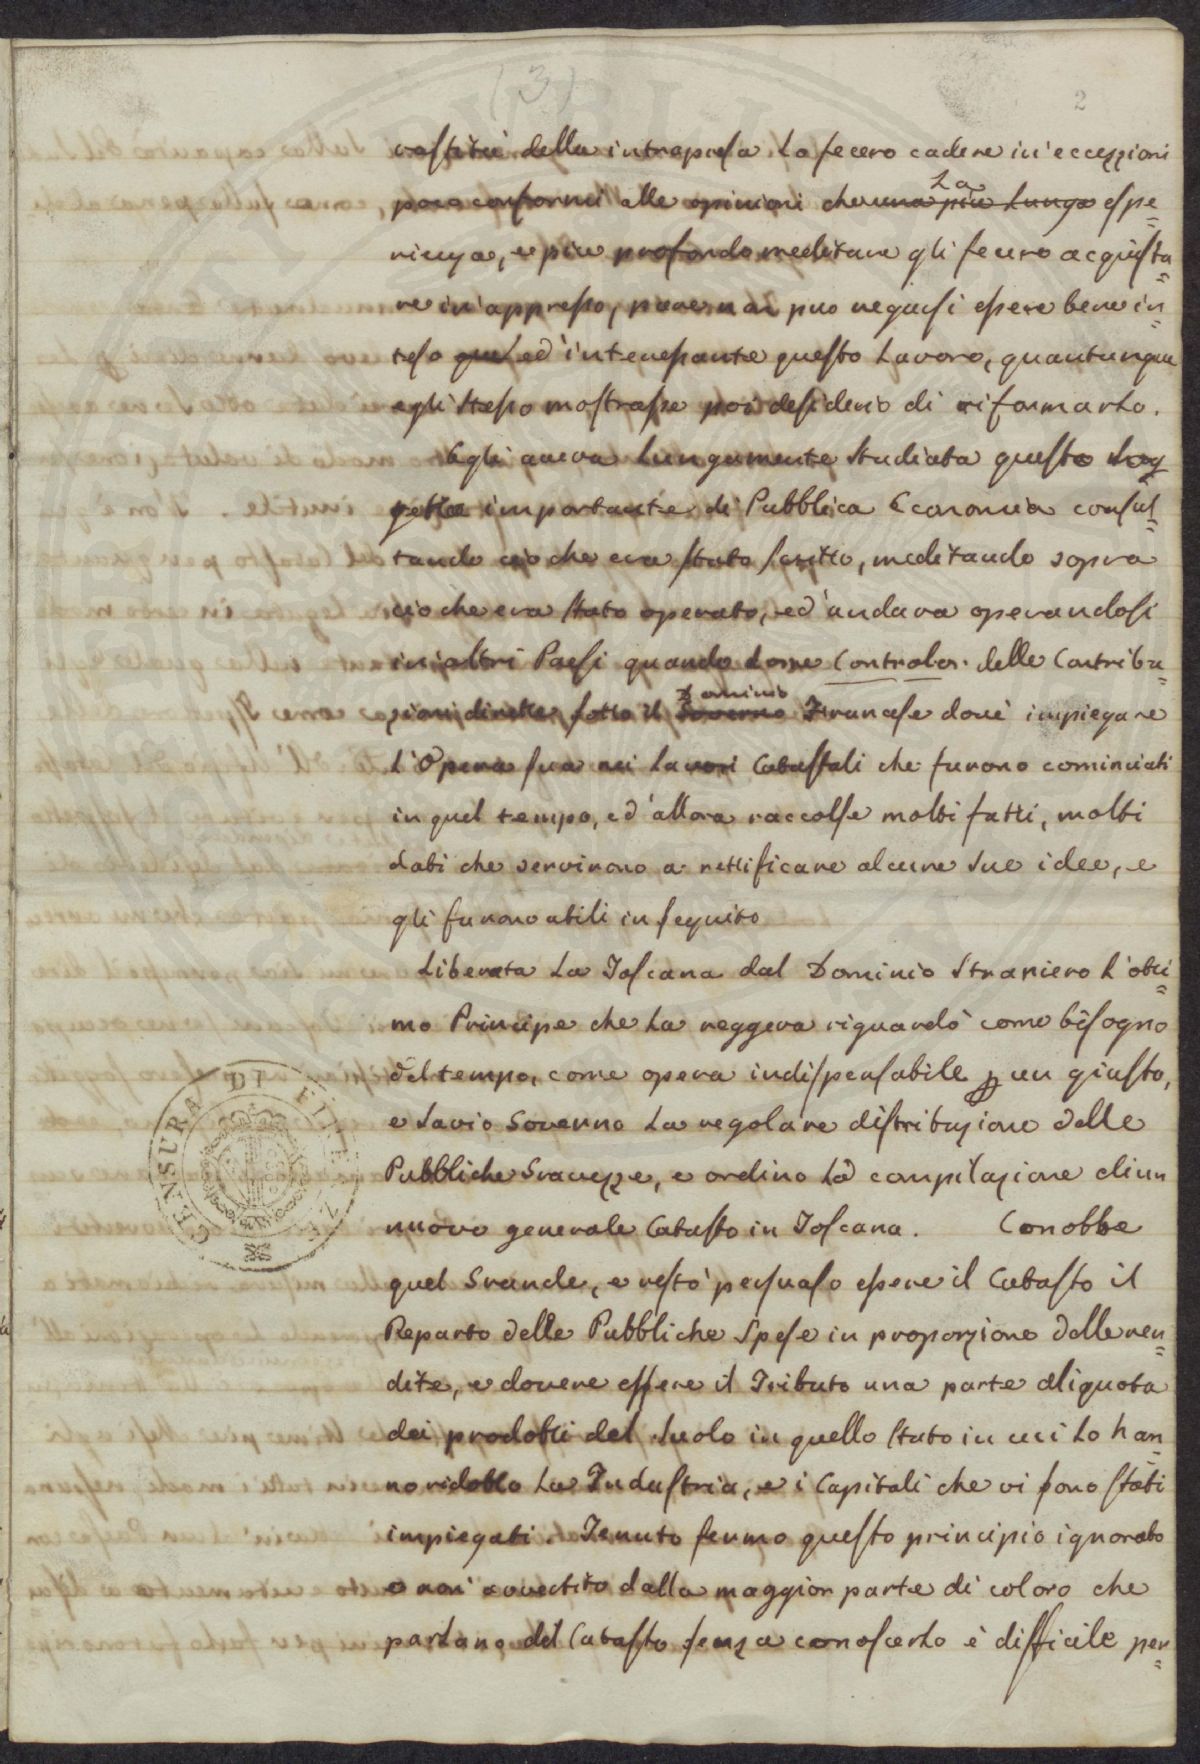 (3)
2
vastità della intrapresa lo fecero cadere in eccezzioni
poco conformi alle opinioni che una più lunga La espe=
rienza, e più profondo meditare gli fecero acquista=
re in appresso, pure non può negarsi essere bene in=
teso ed interessante questo Lavoro, quantunque
egli stesso mostrasse poi desiderio di riformarlo.
Egli aveva lungamente studiata questa
importante di Pubblica Economia consul=
tando ciò che era stato scritto, meditando sopra
ciò che era stato operato, ed andava operandosi
in altri Paesi quando Come Controlor. delle Contribu=
zioni dirette sotto il Governo Dominio Francese dovè impiegare
l'Opera sua nei lavori Catastali che furono cominciati
in quel tempo, ed allora raccolse molti fatti, molti
dati che servirono a rettificare alcune sue idee, e
gli furono utili in seguito
Liberata la Toscana dal Dominio Straniero l'otti=
mo Principe che la reggeva riguardò come bisogno
del tempo, come opera indispensabile p un giusto,
e savio Governo la regolare distribuzione delle
Pubbliche Gravezze, e ordinò la compilazione di un
nuovo generale Catasto in Toscana. Conobbe
quel Grande, e restò persuaso essere il Catasto il
Reparto delle Pubbliche Spese in proporzione delle ren=
dite, e dovere essere il Tributo una parte aliquota
dei prodotti del Suolo in quello stato in cui lo han=
no ridotto la Industria, e i Capitali che vi sono stati
impiegati. Tenuto fermo questo principio ignorato
o non avvertito dalla maggior parte di coloro che
parlano del Catasto senza conoscerlo è difficile per=
CENSURA DI FIRENZE